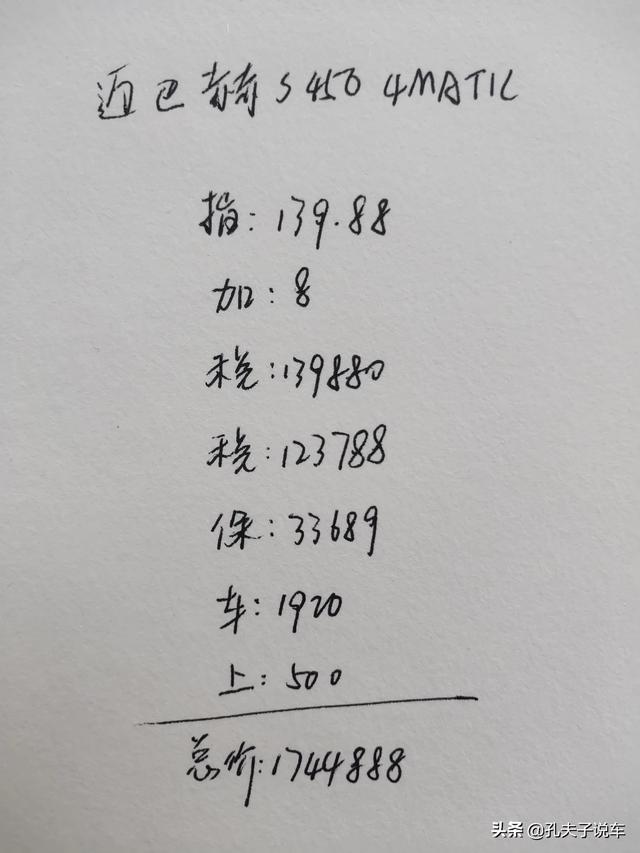 迈巴赫 S 450 4MATIC
指: 139.88
加: 8
税: 139880
税: 123788
保: 33689
车: 1920
上: 500
总价: 1744888
头条 @孔夫子说车